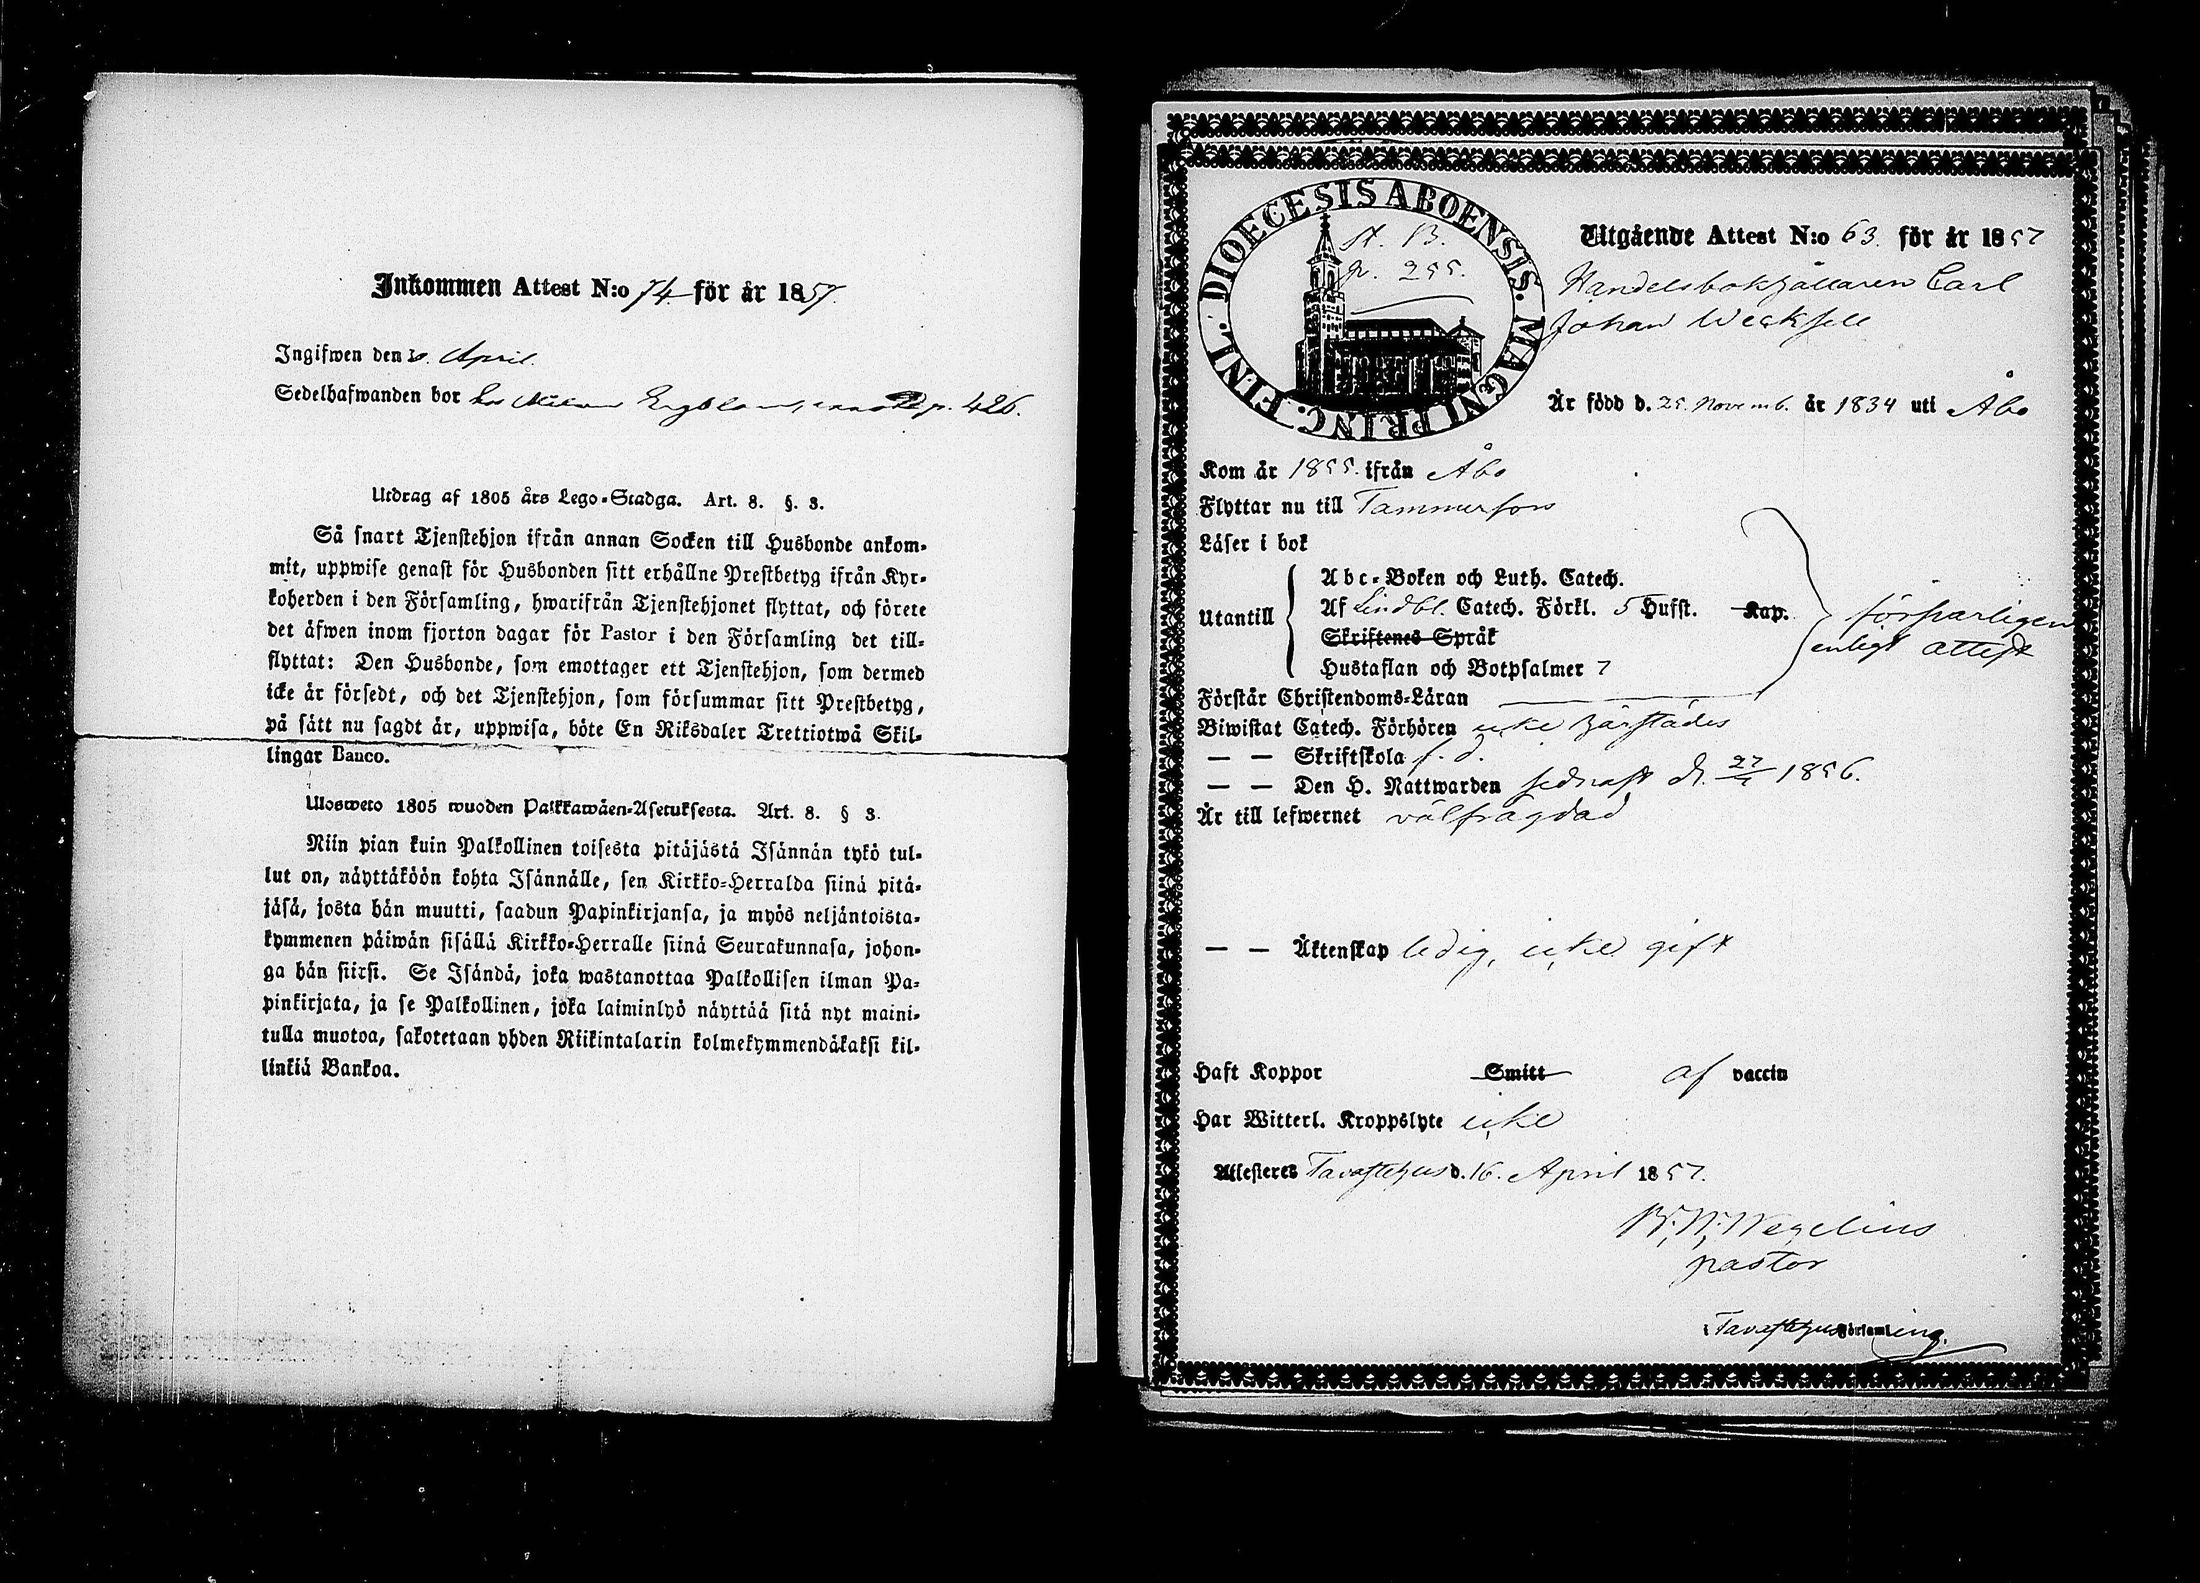 Inkommen Attest N:o 74 för år 1857.
Ingifwen den April.
Sedelhafwanden bor p. 426.
Utdrag af 1805 års Lego-Stadga. Art. 8. §. 3.
Så snart Tjenstehjon ifrån annan Socken till Husbonde ankom-
mit, uppwise genast för Husbonden sitt erhållne Prestbetyg ifrån Kyr-
koherden i den Församling, hwarifrån Tjenstehjonet flyttat, och förete
det äfwen inom fjorton dagar för Pastor i den Församling det till-
flyttat: Den Husbonde, som emottager ett Tjenstehjon, som dermed
icke är försedt, och det Tjenstehjon, som försummar sitt Prestbetyg,
på sätt nu sagdt är, uppwisa, böte En Riksdaler Trettiotwå Skil-
lingar Banco.
Ulosweto 1805 wuoden Palkkawäen-Asetuksesta. Art. 8. § 3.
Niin pian kuin Palkollinen toisesta pitäjästä Isännän tykö tul-
lut on, näyttäköön kohta Isännälle, sen Kirkko-Herralda siinä pitä-
jäsä, josta hän muutti, saadun Papinkirjansa, ja myös neljäntoista-
kymmenen päiwän sisällä Kirkko-Herralle siinä Seurakunnasa, johon-
ga hän siirsi. Se Isändä, joka wastanottaa Palkollisen ilman Pa-
pinkirjata, ja se Palkollinen, joka laiminlyö näyttää sitä nyt maini-
tulla muotoa, sakotetaan yhden Riikintalarin kolmekymmendäkaksi kil-
linkiä Bankoa.
DIOECESIS ABOENSIS. MAGNI PRINC. FINL.
St. B.
p. 255.
Utgående Attest N:o 63. för år 1857
Handelsbokhållaren Carl
Johan Wecksell
Är född d. 25. Novemb. år 1834 uti Åbo
Kom år 1855. ifrån Åbo
Flyttar nu till Tammerfors
Läser i bok
Utantill
Abc-Boken och Luth. Catech.
Af Lindbl. Catech. Förkl. 5 Hufst. Kap.
Skriftenes Språk
Hustaflan och Botpsalmer 7
försvarligen
enligt attest
Förstår Christendoms-Läran
Biwistat Catech. Förhören icke härstädes
— — Skriftskola f. d.
— — Den H. Nattwarden sednast d. 1856.
Är till lefwernet välfrägdad
— — Äktenskap ledig, icke gift
Haft Koppor Smitt af vaccin
Har Witterl. Kroppslyte icke
Attesteres Tavastehus d. 16. April 1857.
Wegelius
pastor
Tavastehus Församling.